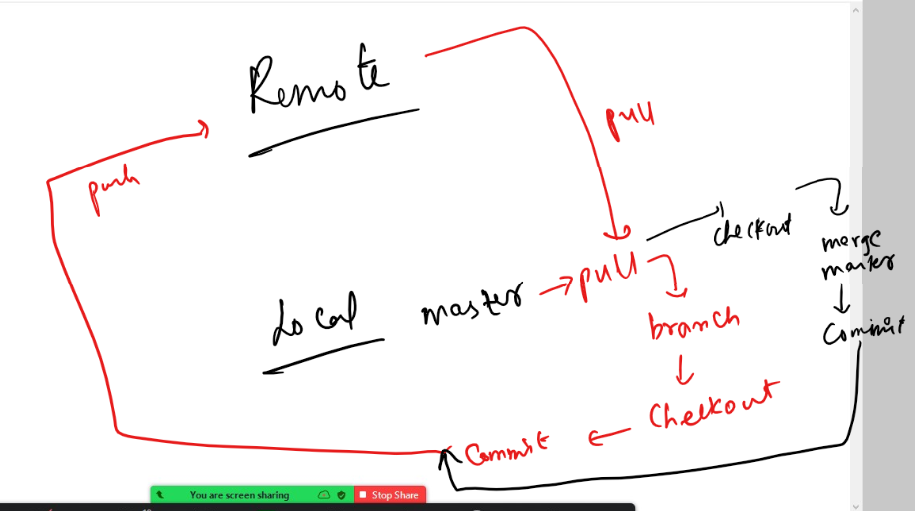 Remote
pull
push
checkout
merge
master
Local
master
pull
branch
Commit
Checkout
Commit
You are screen sharing
Stop Share